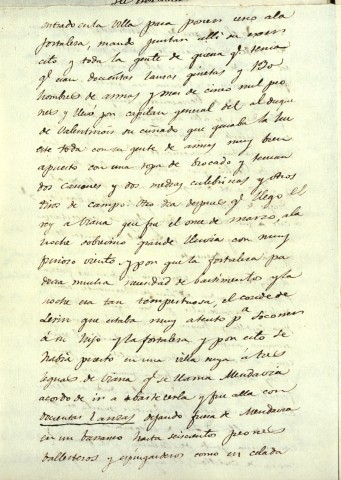 entrado en la villa para poner cerco a la
fortaleza, mando juntar alli su exer
cito y toda la gente de guerra qe tenia
qe eran docientas lanzas ginetas y
hombres de armas y mas de cinco mil peo
nes y llevó por capitan general de el al duque
de Valentinois su cuñado que guiaba la hu
este toda con su gente de armas muy bien
apuesto con una ropa de brocado y tenian
dos cañones y dos medias culebrinas y otros
tiros de campo. Otro dia despues qe llegó el
rey a Viana que fue el once de marzo, a la
noche sobrevino grande lluvia con muy
furioso viento. y por que la fortaleza pa
decia mucha necesidad de bastimentos y la
noche era tan tempestuosa, el conde de
Lerin que estaba muy atento pa. socorrer
á su hijo y la fortaleza y por esto se
habia puesto en una villa suya a tres
leguas de Viana qe se llama Mendavia
acordo de ir a abastecerla y fue alla con
docientas Lanzas dejando fuera de Mendavia
en un barranco hasta seiscientos peones
ballesteros y espingarderos como en celada